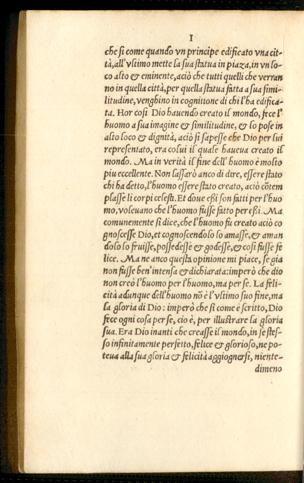 I
che si come quando vn principe edificato vna cit-
tà, all'vltimo mette la sua statua in piaza, in vn lo-
co alto & eminente, aciò che tutti quelli che verran
no in quella città, per quella statua fatta a sua simi-
litudine, venghino in cognitione di chi l'ha edifica-
ta. Hor cosi Dio hauendo creato il mondo, fece l'
huomo a sua imagine & similitudine, & lo pose in
alto loco & dignità, aciò si sapesse che Dio per lui
representato, era colui il quale haueua creato il
mondo. Ma in verità il fine dell'huomo è molto
piu eccellente. Non lassarò anco di dire, essere stato
chi ha detto, l'huomo essere stato creato, aciò cōtem
plasse li corpi celesti. Et doue essi son fatti per l'huo
mo, voleuano che l'huomo fusse fatto per essi. Ma
comunemente si dice, che l'huomo fu creato aciò co
gnoscesse Dio, et cognoscendolo lo amasse, & aman
dolo lo fruisse, possedesse & godesse, & cosi fusse fe
lice. Ma ne anco questa opinione mi piace, se gia
non fusse ben'intensa & dichiarata: imperò che dio
non creò l'huomo per l'huomo, ma per se. La feli-
cità adunque dell'huomo nō è l'vltimo suo fine, ma
la gloria di Dio: imperò che si come è scritto, Dio
fece ogni cosa per se, cio è, per illustrare la gloria
sua. Era Dio inanti che creasse il mondo, in se stes-
so infinitamente perfetto, felice & glorioso, ne po-
teua alla sua gloria & felicità aggiognersi, niente-
dimeno